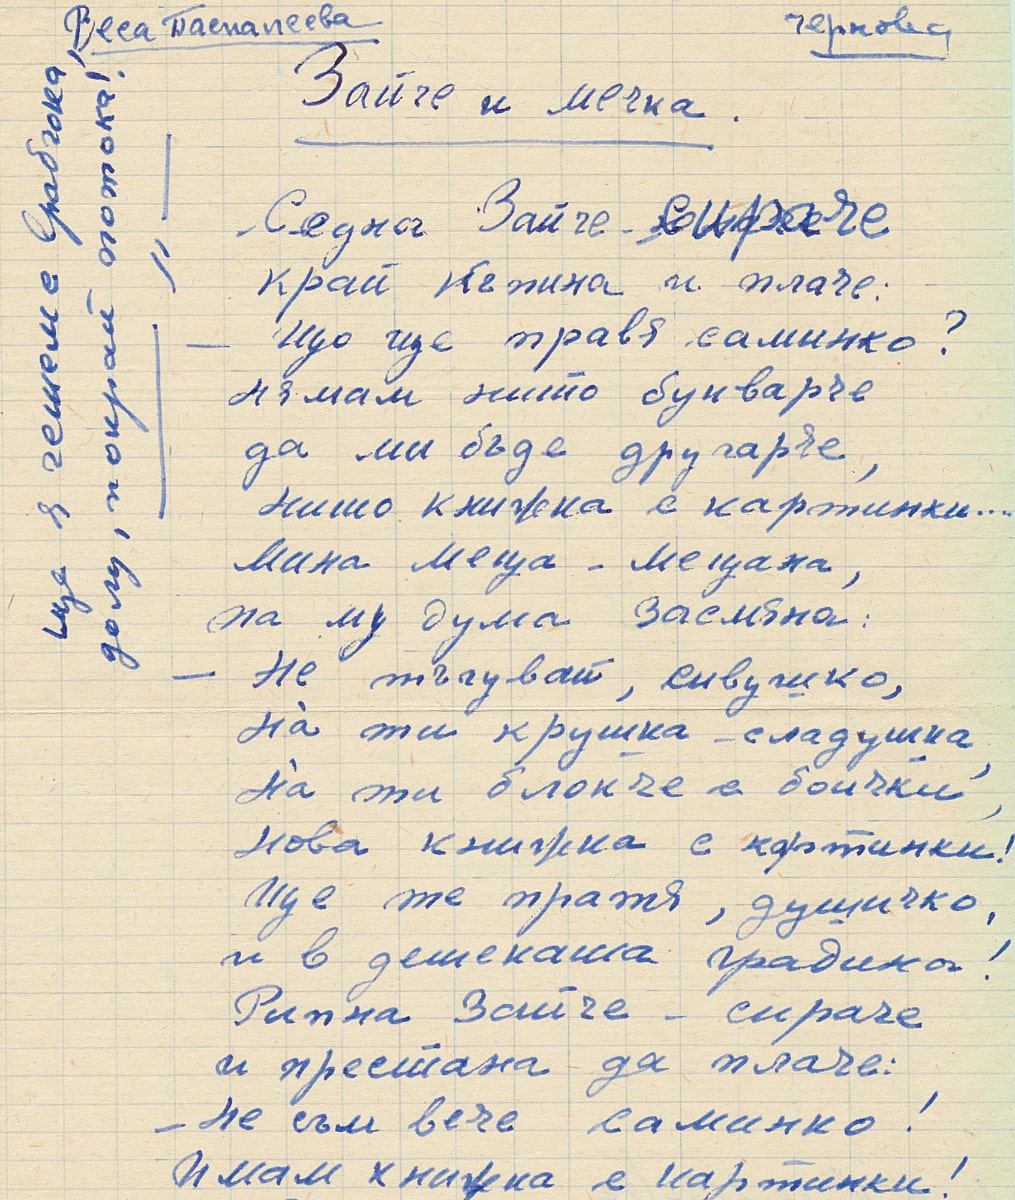 Веса Паспалеева
чернова
Зайче и мечка.
- Седна Зайче - сираче
край къпина и плаче:
- Що ще правя саминко?
Нямам нито букварче
да ми бъде другарче,
нито книжка с картинки....
Мина Меца - Мецана,
па му дума засмяна:
- Не тъгувай, сивушко,
нà ти крушка - сладушка,
нà ти блокче с боички,
нова книжка с картинки!
Ще те пратя, душичко,
и в детската градина!
Рипна Зайче - сираче
и престана да плаче:
- Не съм вече саминко!
Имам книжка с картинки!
Ще я четеме двабтока,
долу, покрай потока!